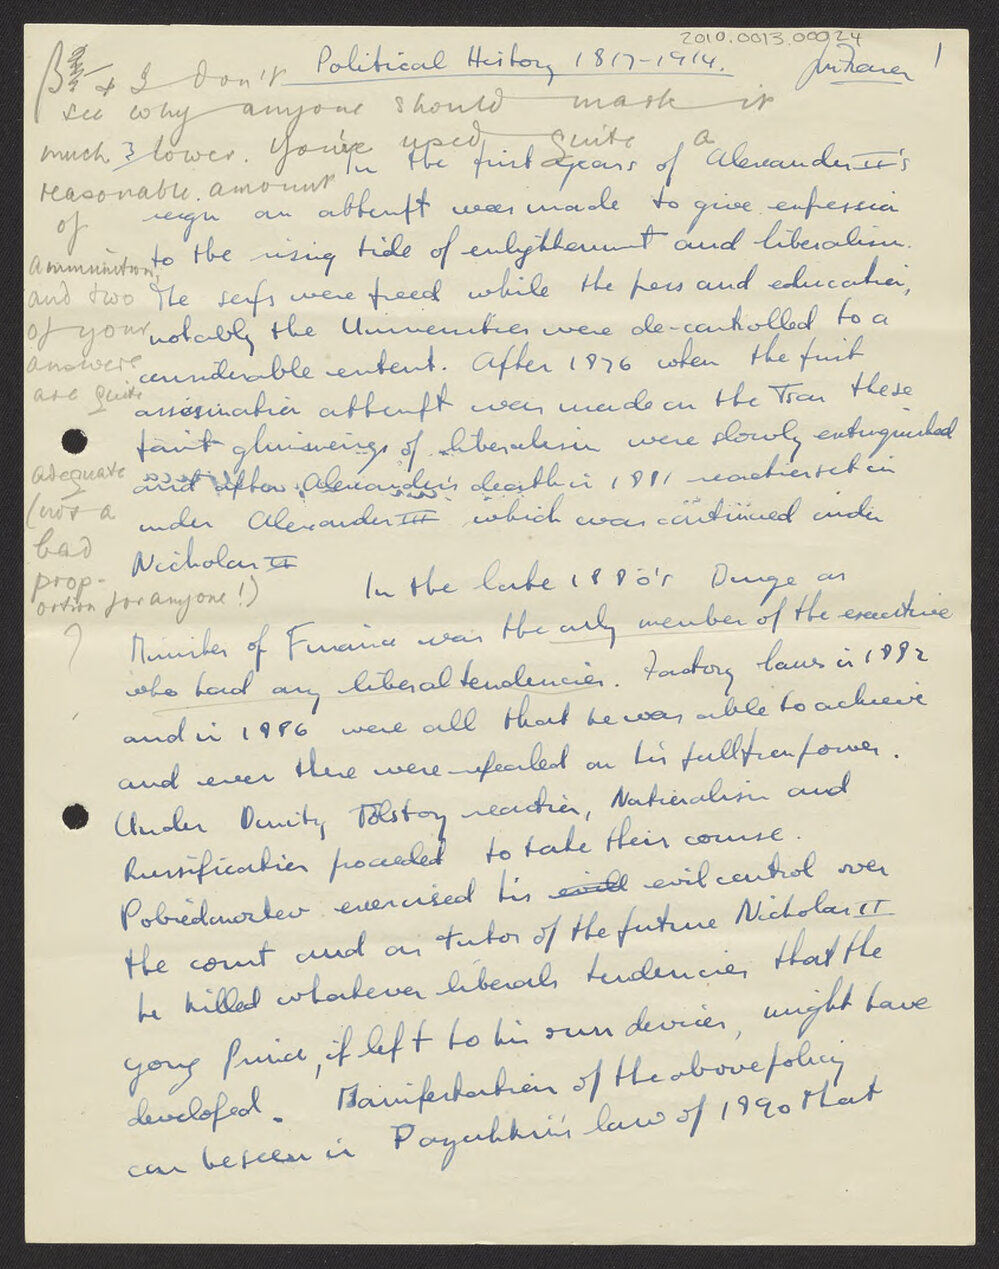 2010.0013.00024
Political History 1817-1914.
1
B + I don't
see why anyone should mark it
much lower. You've used quite a
reasonable amount
of
ammunition,
and two
of your
answers
are quite
adequate
(not a
bad
prop-
ortion for anyone!)
In the first years of Alexander II's
reign an attempt was made to give expression
to the rising tide of enlightenment and liberalism.
The serfs were freed while the press and education,
notably the Universities were de-controlled to a
considerable extent. After 1876 when the first
assassination attempt was made on the Tsar these
faint glimmerings of liberalism were slowly extinguished
and after Alexander's death in 1881 reaction set in
under Alexander III which was continued under
Nicholas II
In the late 1880's Bunge as
Minister of Finance was the only member of the executive
who had any liberal tendencies. Factory laws in 1882
and in 1886 were all that he was able to achieve
and even these were repealed on his fall from power.
Under Dmitry Tolstoy reaction, Nationalism and
Russification proceeded to take their course.
Pobiedonostev exercised his evil control over
the court and as tutor of the future Nicholas II
he killed whatever liberals tendencies that the
yong Prince, if left to his own devices, might have
developed. Manifestation of the above policy
can be seen in Pazukhin's law of 1890 that